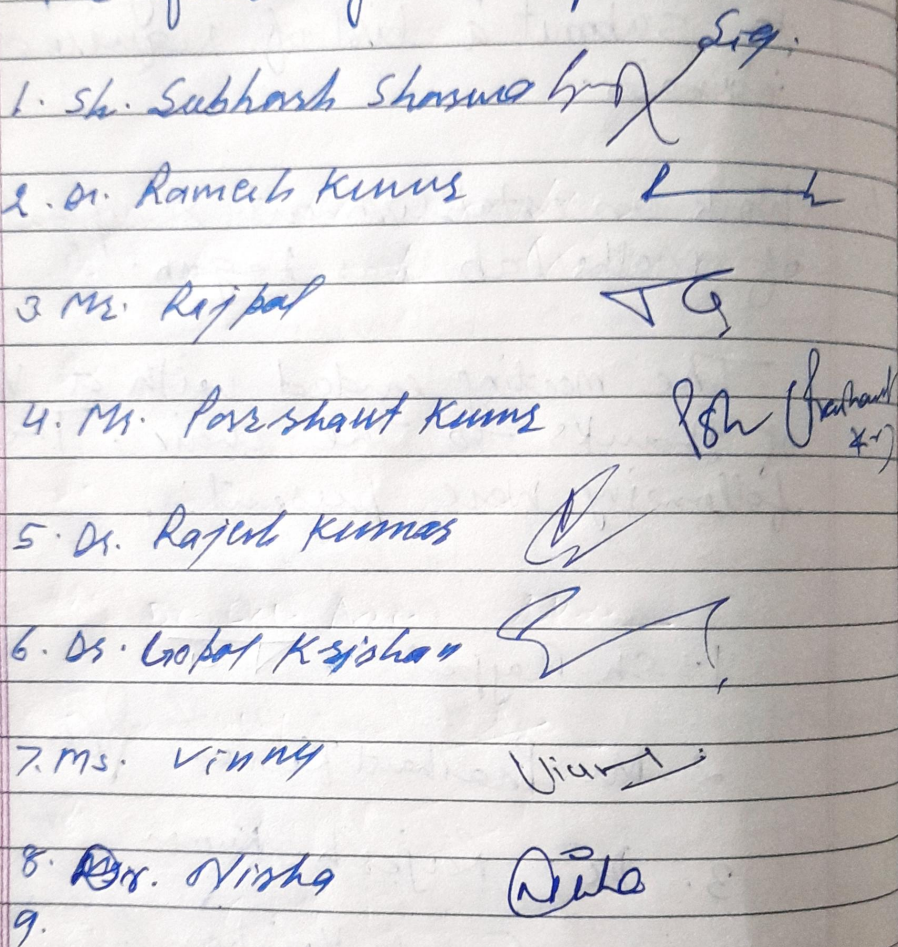 Sig.
1. Sh. Subhash Sharma
2. Dr. Ramesh Kumar
3. Mr. Rajpal
4. Mr. Parshant Kumar
5. Dr. Rajesh Kumar
6. Dr. Gopal Krishan
7. Ms. Vinny
8. Dr. Nisha Nisha
9.